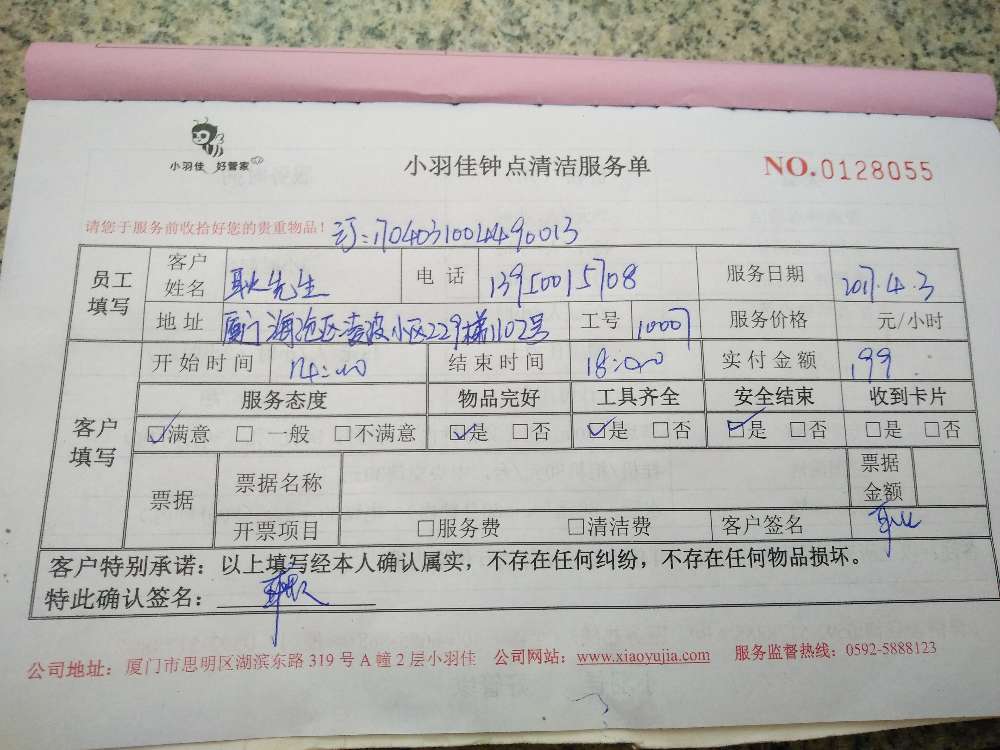 小羽佳 好管家
小羽佳钟点清洁服务单
NO.0128055
请您于服务前收拾好您的贵重物品!
订:170403100449 0013
员工填写 客户姓名 耿先生 电话 13950015708 服务日期 2017.4.3
地址 厦门海沧区 小区229梯1102号 工号 10007 服务价格 元/小时
客户填写 开始时间 14:00 结束时间 18:00 实付金额 199
服务态度 物品完好 工具齐全 安全结束 收到卡片
☑满意 □一般 □不满意 ☑是 □否 ☑是 □否 ☑是 □否 □是 □否
票据 票据名称 票据金额
开票项目 □服务费 □清洁费 客户签名 耿
客户特别承诺:以上填写经本人确认属实,不存在任何纠纷,不存在任何物品损坏。
特此确认签名:
公司地址:厦门市思明区湖滨东路 319 号 A 幢 2 层小羽佳 公司网站:www.xiaoyujia.com 服务监督热线:0592-5888123